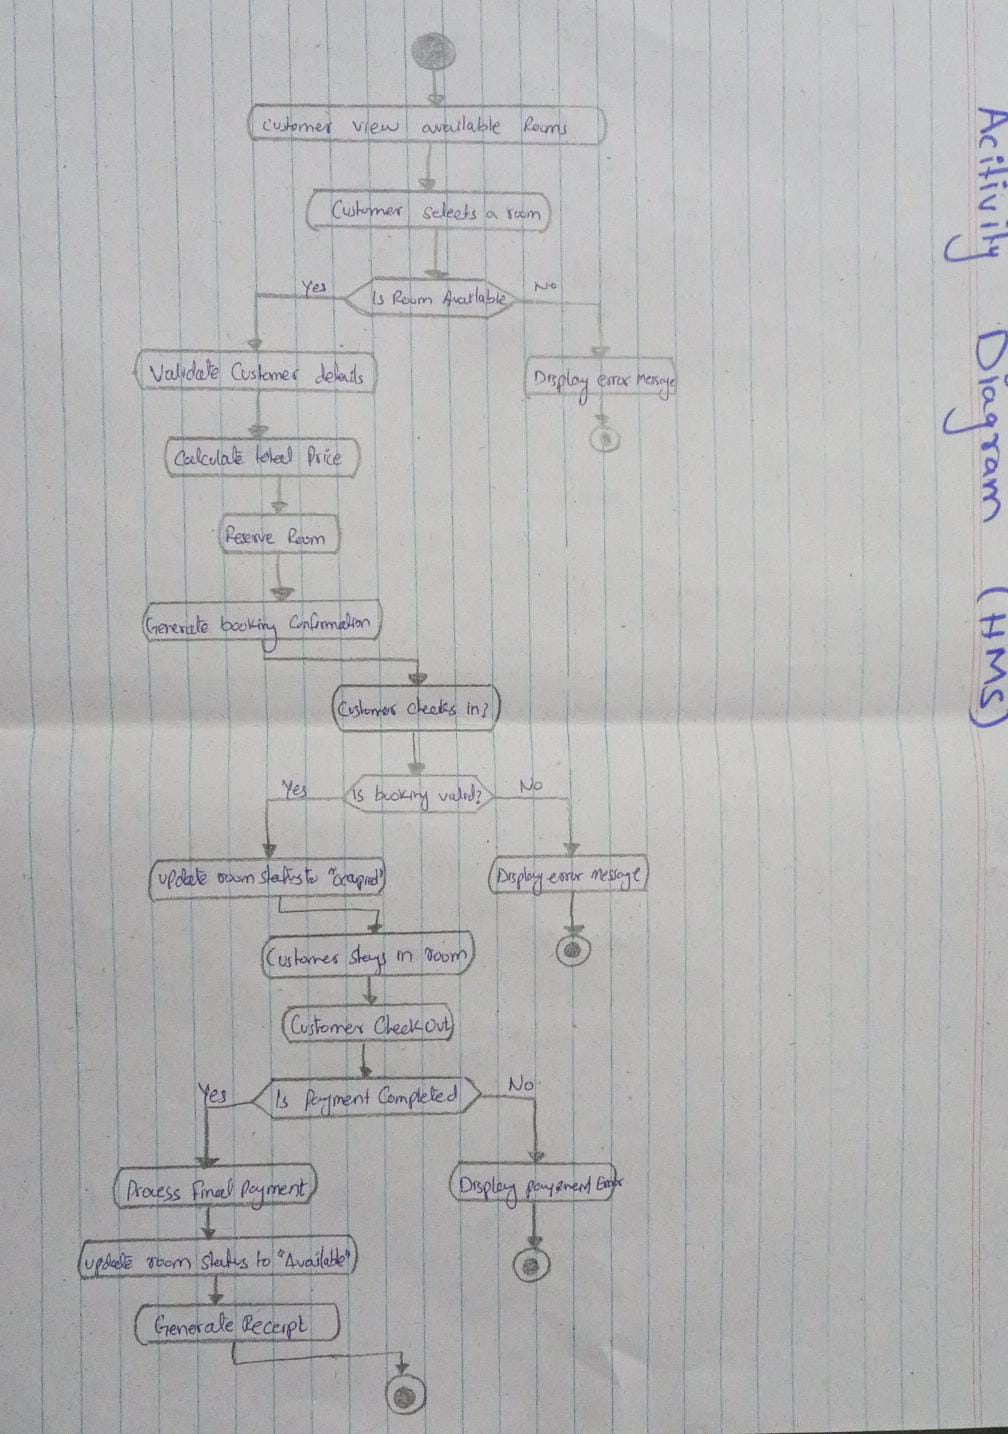 Acitivity Diagram (HMS)
Customer view available Rooms
Customer selects a room
Is Room Available
Yes
No
Validate Customer details
Display error Message
Calculate total Price
Reserve Room
Generate booking Confirmation
Customer checks in?
Is booking valid?
Yes
No
update room status to "Occupied"
Display error Message
Customer stays in room
Customer Check Out
Is Payment Completed
Yes
No
Process Final Payment
Display payement Error
update room status to "Available"
Generate Receipt